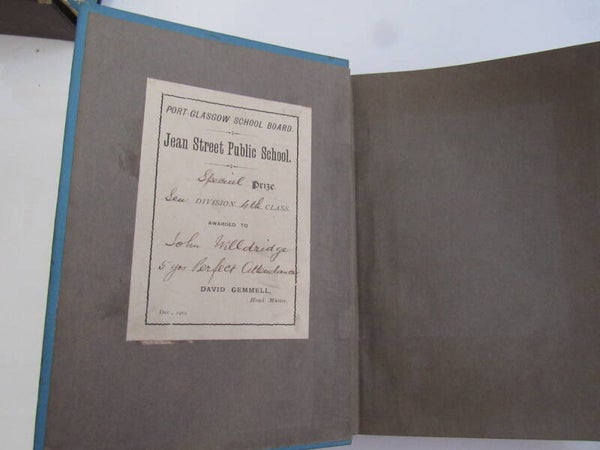 PORT-GLASGOW SCHOOL BOARD.
Jean Street Public School.
Special Prize
Sen DIVISION 4th CLASS.
AWARDED TO
John Willdridge
5 yrs Perfect Attendance
DAVID GEMMELL,
Head Master.
Dec.,